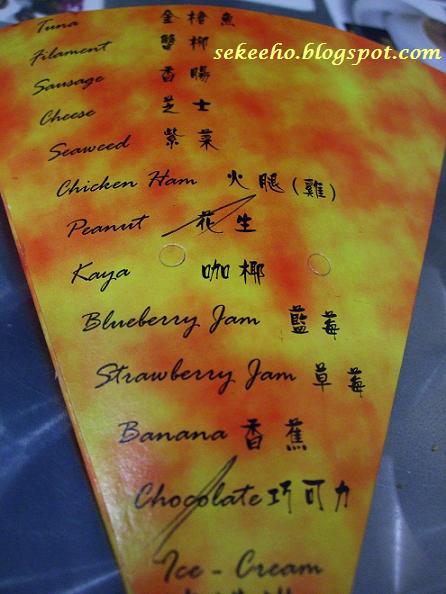 Tuna 金槍魚
sekeeho.blogspot.com
Filament 蟹柳
Sausage 香腸
Cheese 芝士
Seaweed 紫菜
Chicken Ham 火腿(雞)
Peanut 花生
Kaya 咖椰
Blueberry Jam 藍莓
Strawberry Jam 草莓
Banana 香蕉
Chocolate 巧可力
Ice - Cream